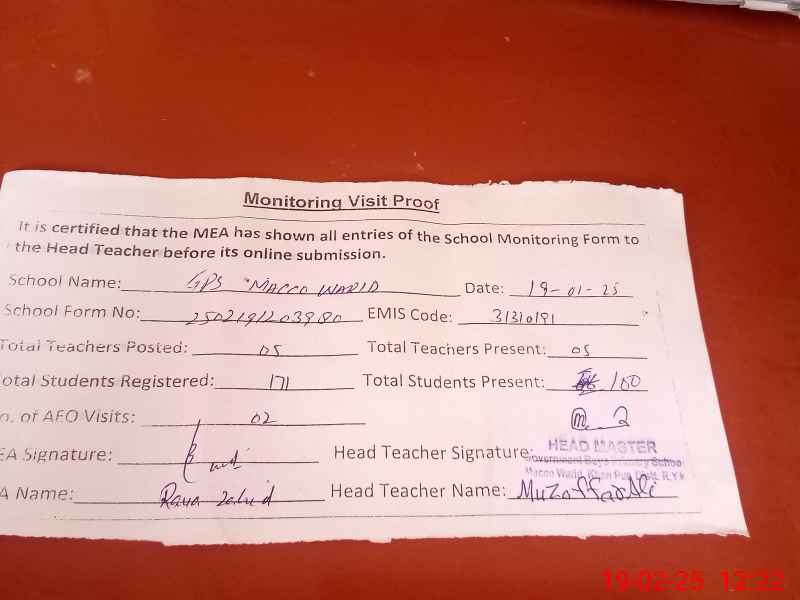 Monitoring Visit Proof
It is certified that the MEA has shown all entries of the School Monitoring Form to
the Head Teacher before its online submission.
School Name: GPS MACCO WARID Date: 19-01-25
School Form No: 2502191203980 EMIS Code: 31310191
Total Teachers Posted: 05 Total Teachers Present: 05
otal Students Registered: 171 Total Students Present: 160
o. of AEO Visits: 02
EA Signature: Head Teacher Signature:
HEAD MASTER
Government Boys Primary School
Macco Warid, Khan Pur, Distt. R.Y.K
A Name: Rana Zahid Head Teacher Name: Muzaffar Ali
19-02-25 12:22